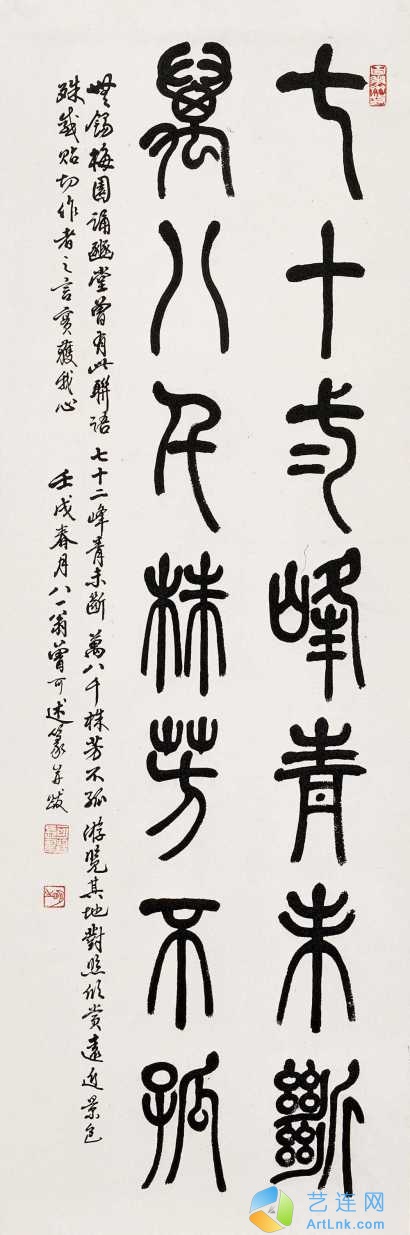 七十弍峰青未斷
萬八千株芳不孤
無錫梅園誦豳堂曾有此聯語 七十二峰青未斷 萬八千株芳不孤 游覽其地對照欣賞遠近景色
殊感貼切作者之言實獲我心
壬戌春月八一翁曾可述篆并跋
艺连网
ArtLnk.com